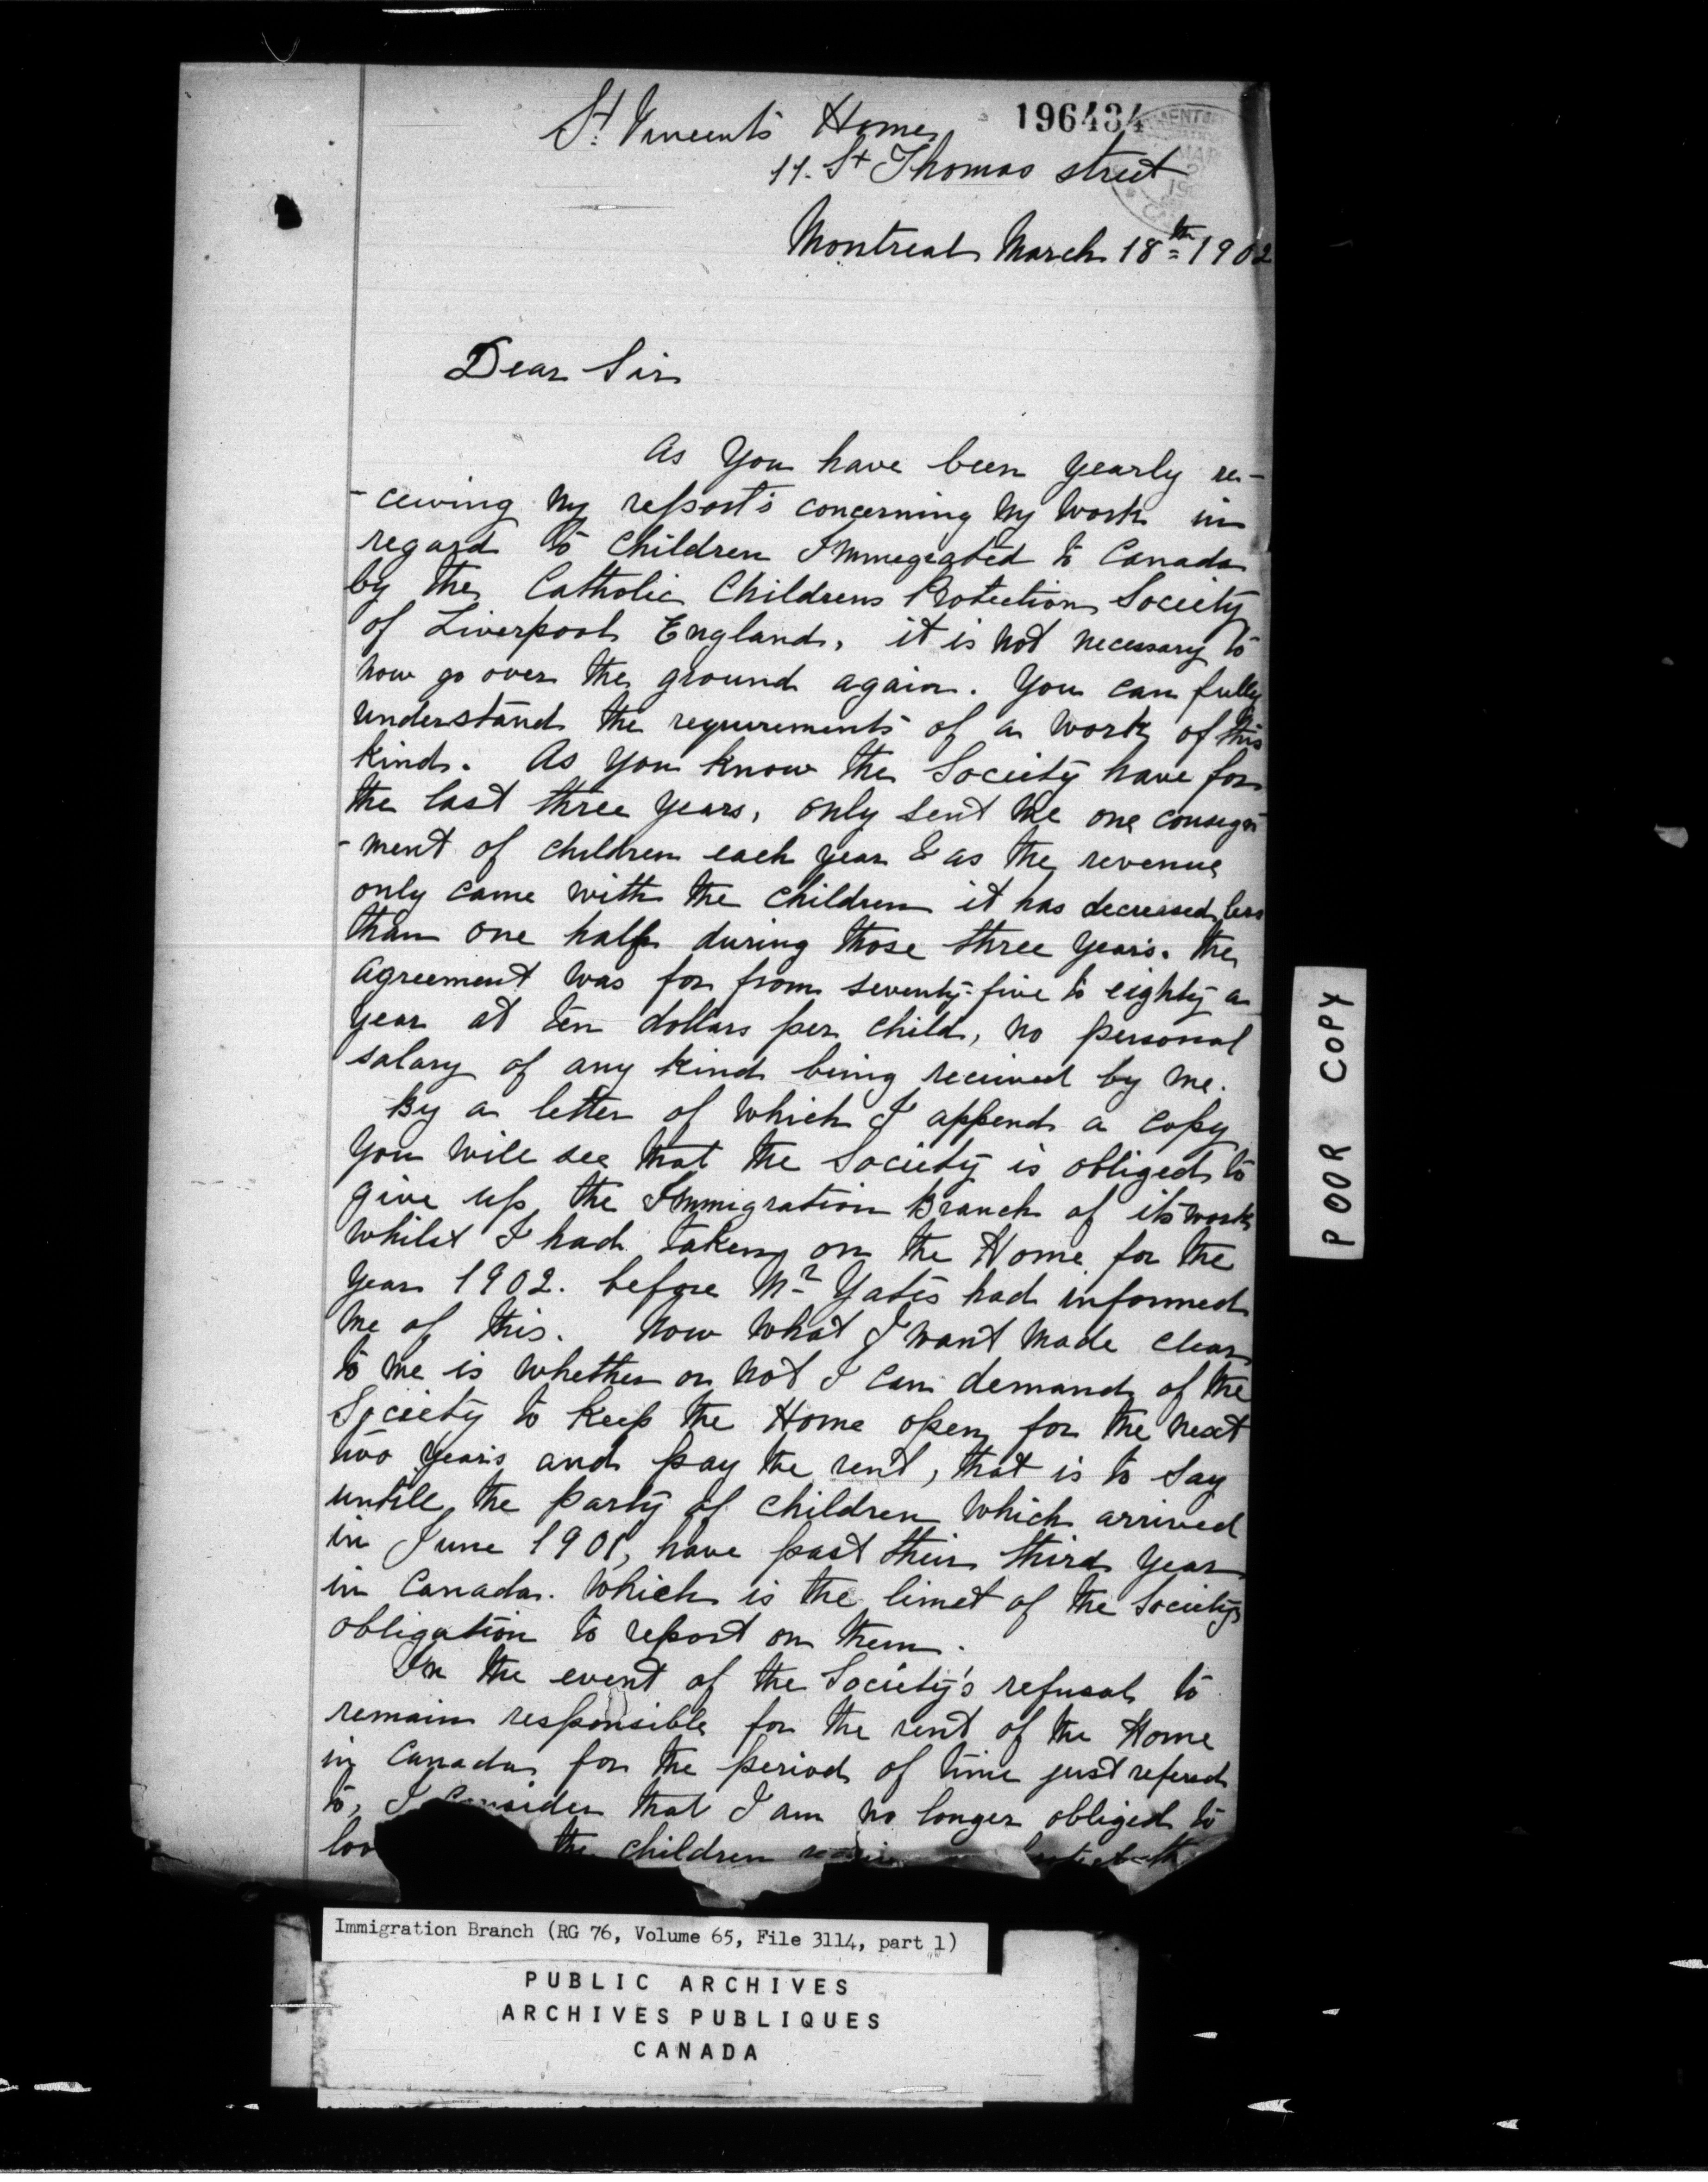 196434
St. Vincent's Home
11. St Thomas street
Montreal March 18th 1902
Dear Sir
As you have been yearly re-
-ceiving my report's concerning my work in
regard to children Immegrated to Canada
by the Catholic Childrens Protection Society
of Liverpool England, it is not necessary to
now go over the ground again. You can fully
understand the requirements of a work of this
kind. As you know the Society have for
the last three years, only sent me one consign
-ment of children each year & as the revenue
only came with the children it has decreased less
than one half during those three years. The
agreement was for from seventy-five to eighty a
year at ten dollars per child, no personal
salary of any kind being received by me.
By a letter of which I append a copy
you will see that the Society is obliged to
give up the Immigration Branch of its work
whilst I had taken on the Home for the
year 1902. before Mr Yates had informed
me of this. Now what I want made clear
to me is whether or not I can demand of the
Society to keep the Home open for the next
two years and pay the rent, that is to say
untill the party of children which arrived
in June 1901, have past their third year
in Canada. Which is the limet of the Society's
obligation to report on them.
In the event of the Society's refusal to
remain responsible for the rent of the Home
in Canada for the period of time just refered
to, I consider that I am no longer obliged to
the children
POOR COPY
Immigration Branch (RG 76, Volume 65, File 3114, part 1)
PUBLIC ARCHIVES
ARCHIVES PUBLIQUES
CANADA